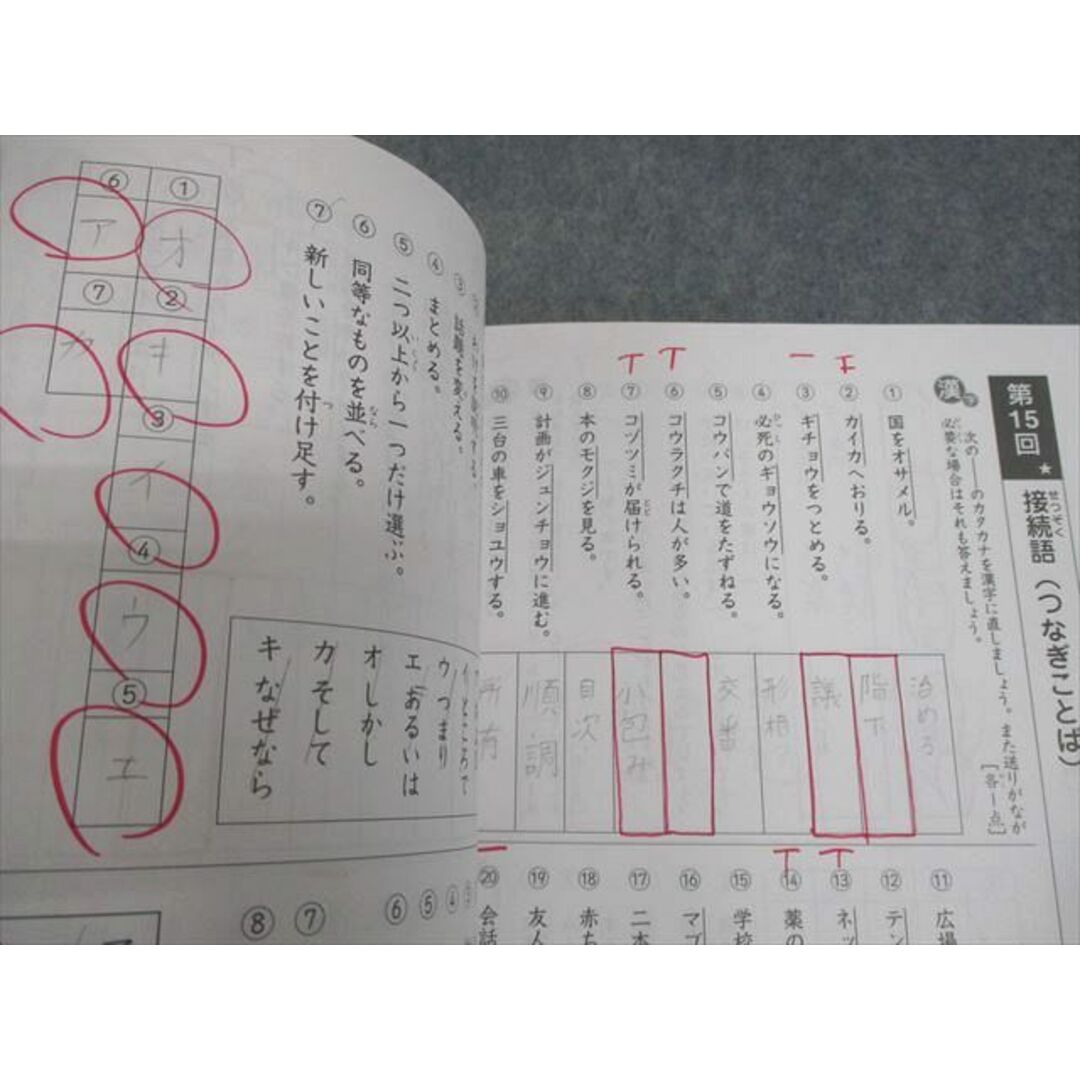 第15回
★
接続語（つなぎことば）
せつぞく
漢字
次の――のカタカナを漢字に直しましょう。また送りがなが
必要な場合はそれも答えましょう。
［各1点］
① 国をオサメル。
② カイカへおりる。
③ ギチョウをつとめる。
④ 必死のギョウソウになる。
⑤ コウバンで道をたずねる。
⑥ コウラクチは人が多い。
⑦ コヅツミが届けられる。
⑧ 本のモクジを見る。
⑨ 計画がジュンチョウに進む。
⑩ 三台の車をショユウする。
治める
階下
議
形相
交番
小包み
目次
順調
所有
⑪ 広場
⑫ テン
⑬ ネッ
⑭ 薬の
⑮ 学校
⑯ マブ
⑰ 二本
⑱ 赤ち
⑲ 友人
⑳ 会話
③ 話題を変える。
④ まとめる。
⑤ 二つ以上から一つだけ選ぶ。
⑥ 同等なものを並べる。
⑦ 新しいことを付け足す。
イ ところで
ウ つまり
エ あるいは
オ しかし
カ そして
キ なぜなら
① オ
② キ
③ イ
④ ウ
⑤ エ
⑥ ア
⑦ カ
④
⑤
⑥
⑦
⑧